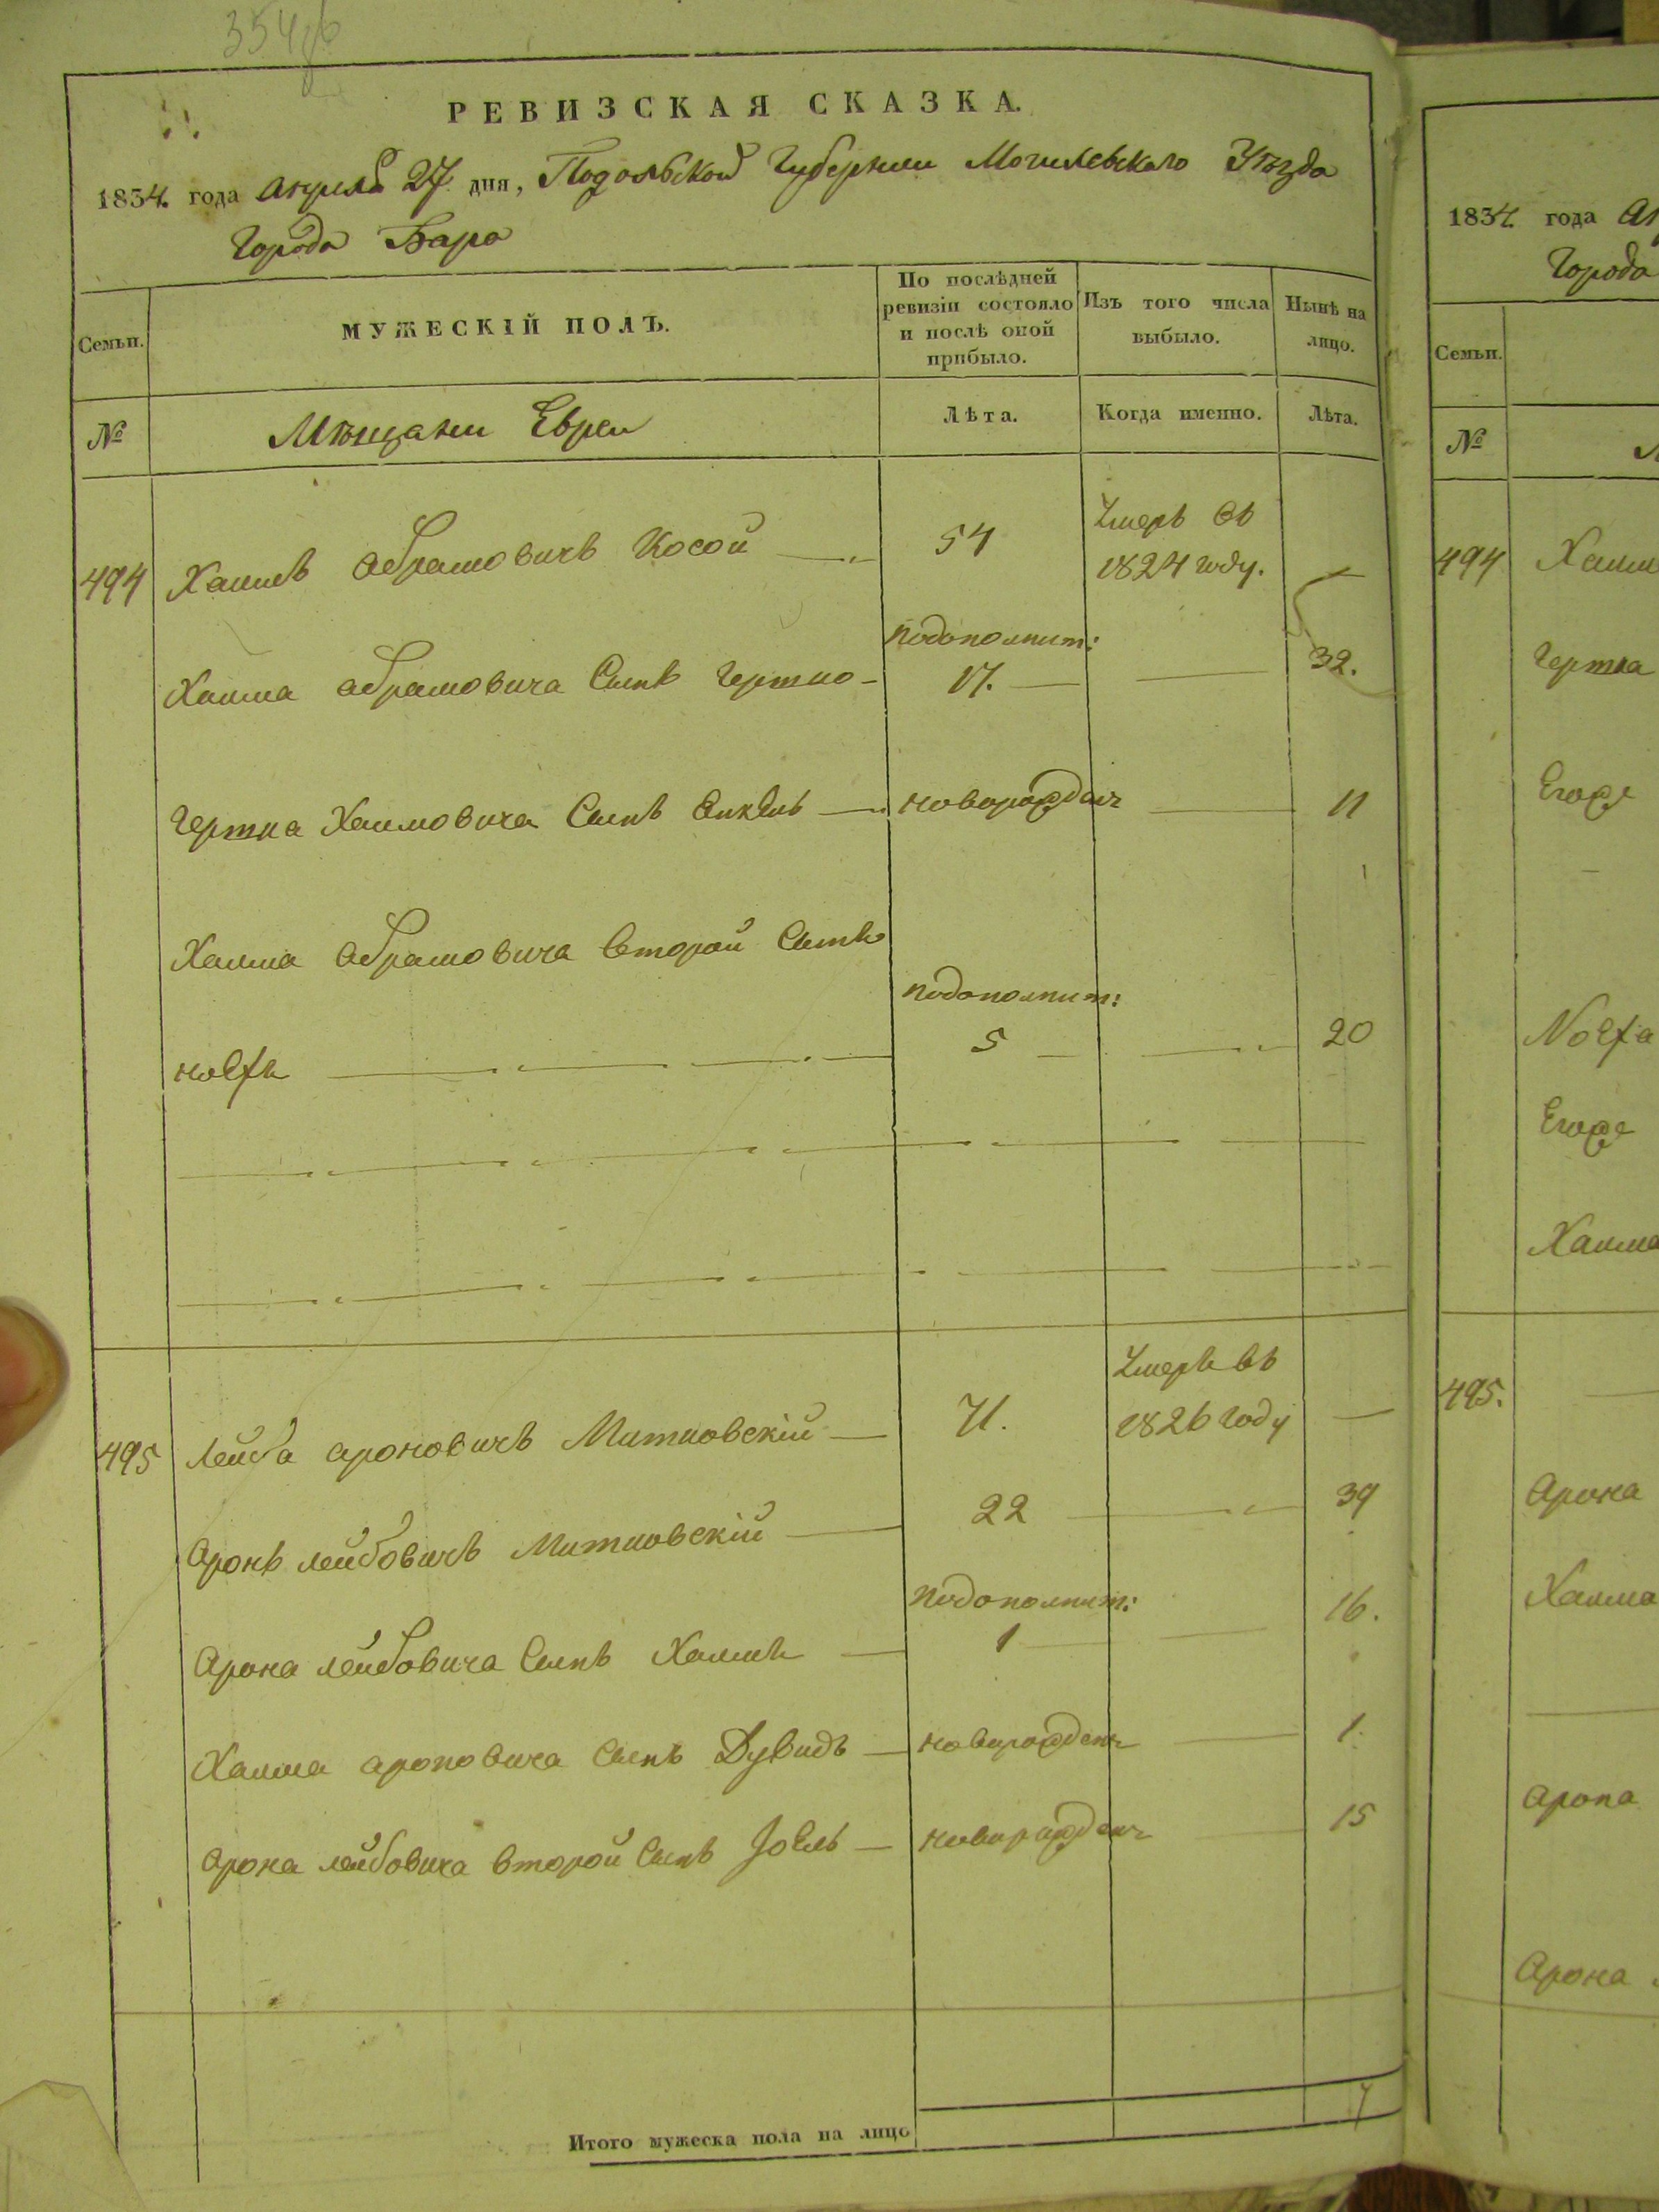 354об
РЕВИЗСКАЯ СКАЗКА.
1834. года апреля 27 дня, Подольской Губернии Могилевского Уѣзда
Города Бара
Семьи.
МУЖЕСКІЙ ПОЛЪ.
По послѣдней
ревизіи состояло
и послѣ оной
прибыло.
Изъ того числа
выбыло.
Нынѣ на
лицо.
№
Мѣщани Евреи
Лѣта.
Когда именно.
Лѣта.
494 Хаимъ Абрамовичъ Косой 54 Умеръ въ
1824 году.
подополнит:
Хаима Абрамовича Сынъ 17. 32.
Хаимовича Сынъ новорожден 11
Хаима Абрамовича второй Сынъ
подополнит:
5 20
495 Лейба Ароновичъ Митковскій 71. Умеръ въ
1826 году
Аронъ Лейбовичъ Митковскій 22 39
подополнит:
Арона Лейбовича Сынъ Хаимъ 1 16.
Хаима Ароновича Сынъ Дувидъ новорожден 1.
Арона Лейбовича второй Сынъ Іоель новорожден 15
Итого мужеска пола на лицо 7
1834. года
Города
Семьи.
№
494 Хаим
Егоже
Егоже
Хаима
495.
Арона
Хаима
Арона
Арона